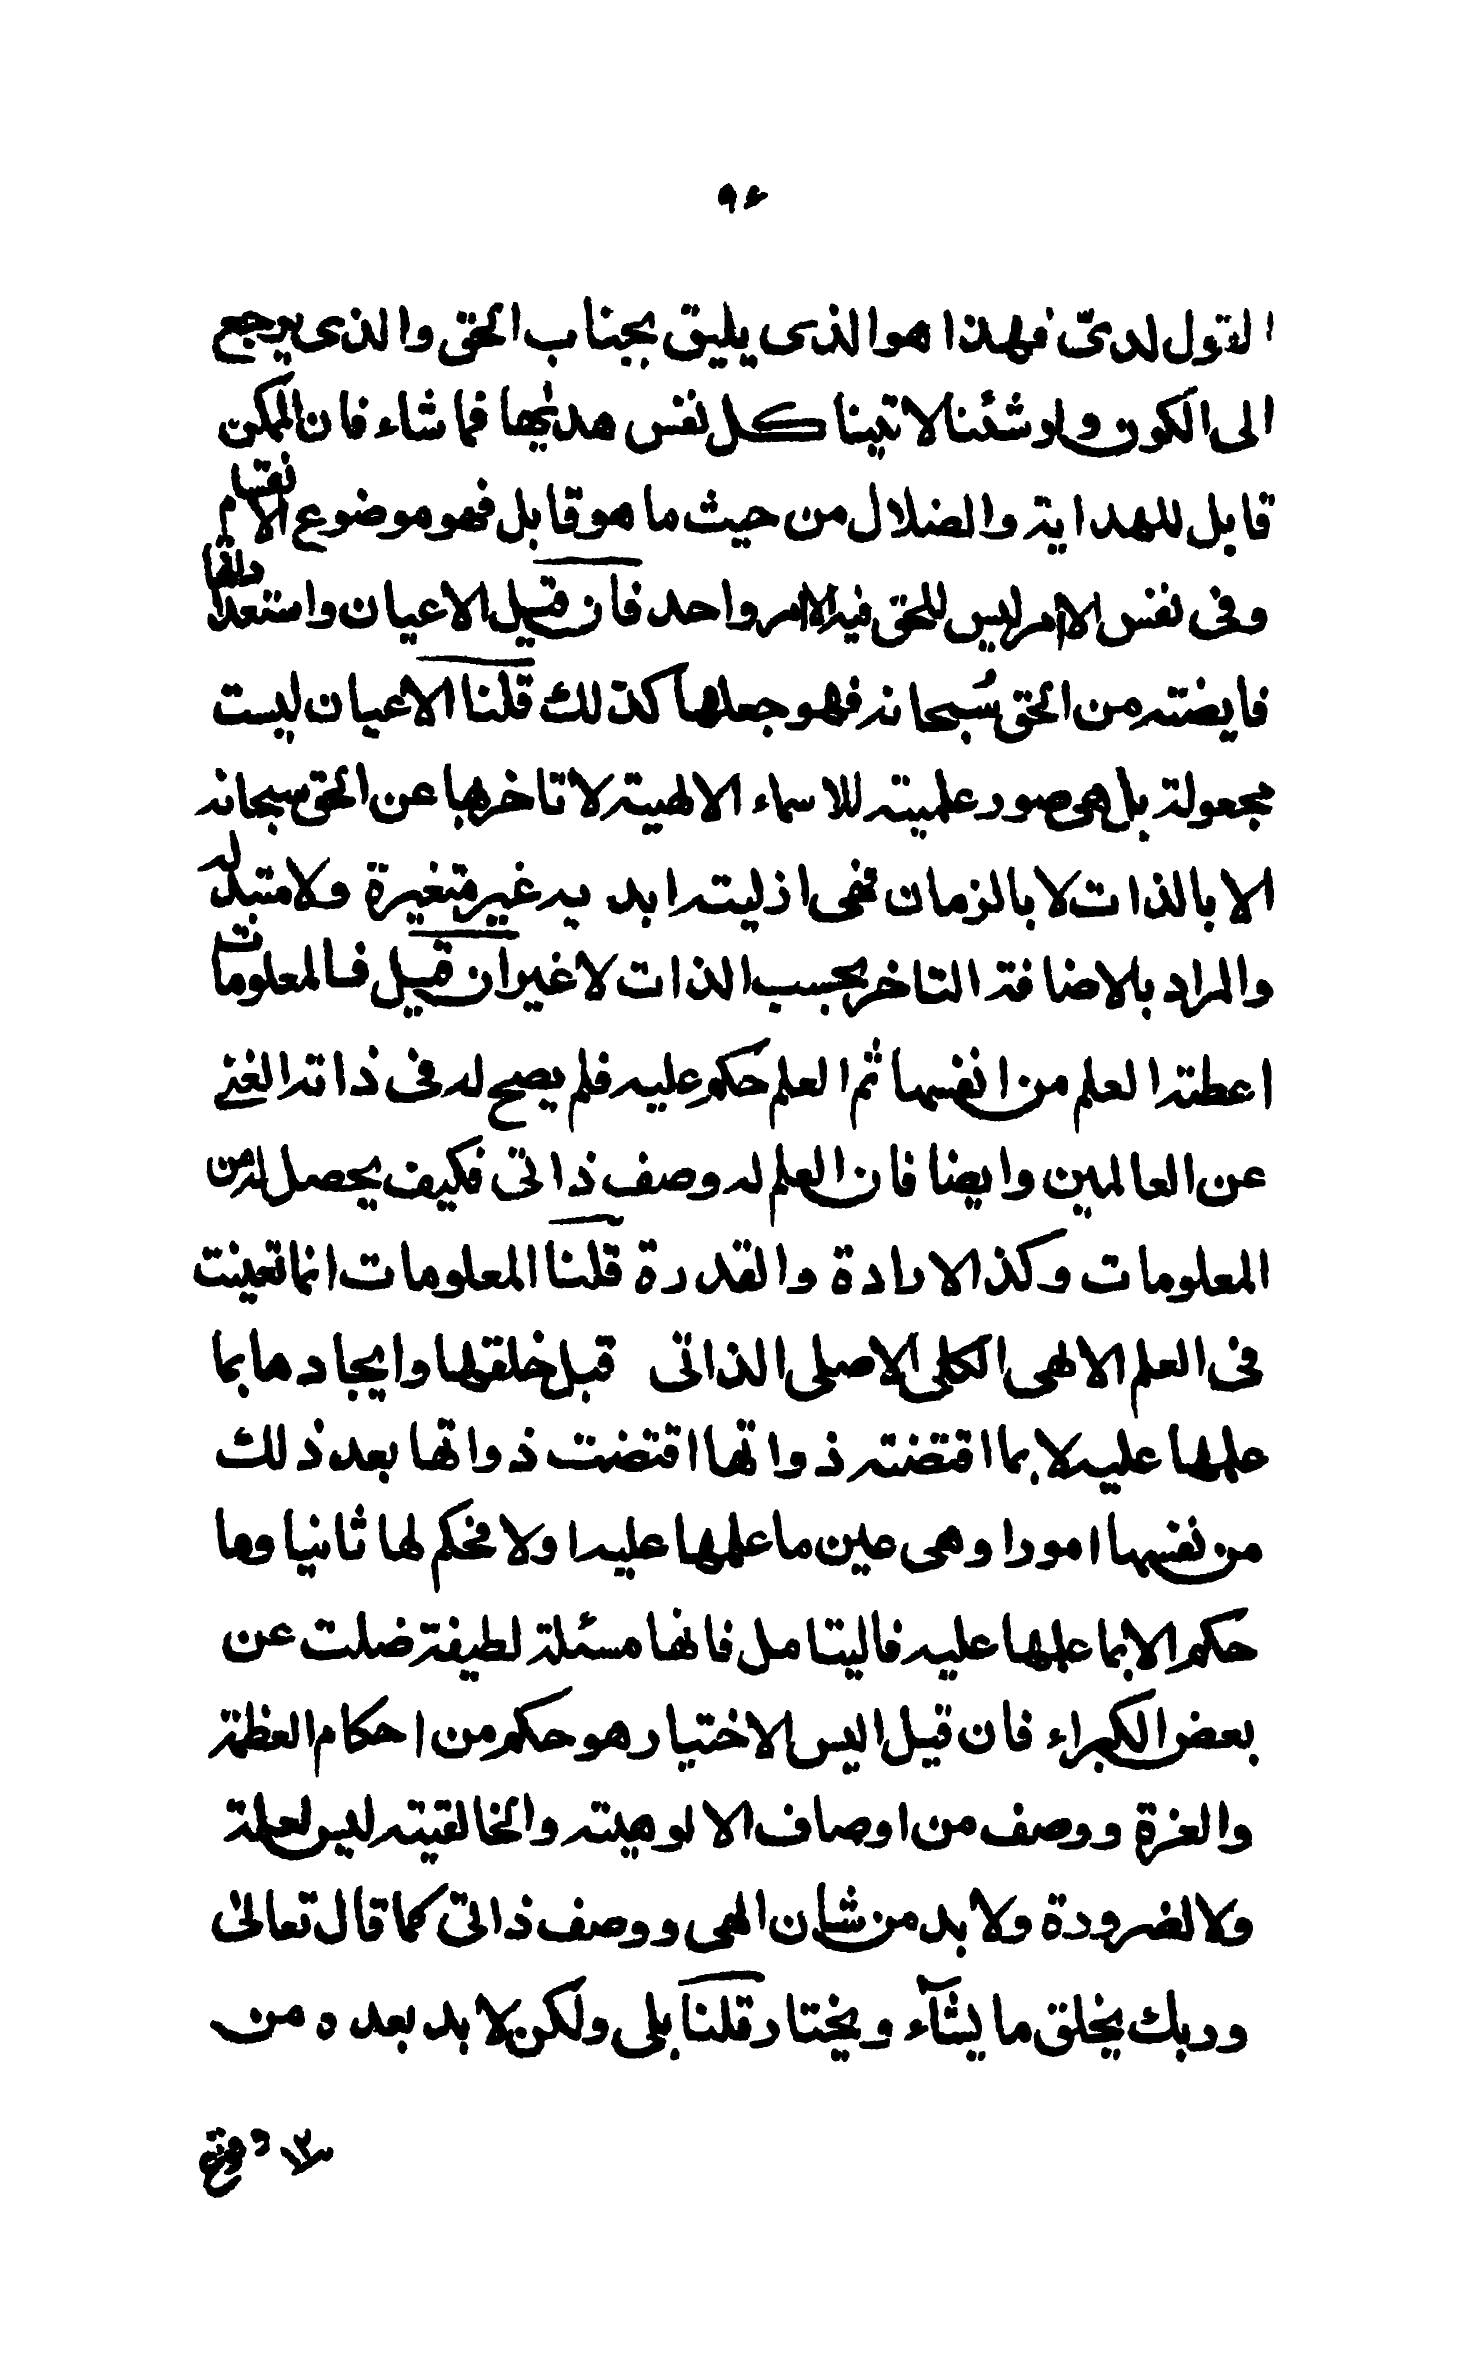 ٩٤
القول لدىّ فهذا هو الذى يليق بجناب الحق والذى يرجع
الى الكون ولو شئنا لاتينا كل نفس هديٰها فما شاء فان الممكن
قابل للهداية والضلال من حيث ما هو قابل فهو موضوع الانقسام
وفى نفس الامر ليس للحق فيه الا امر واحد فان قيل الاعيان واستعداداتها
فايضته من الحق سُبحانه فهو جعلها كذلك قلنا الاعيان ليست
مجعولة بل هى صور علميته للاسماء الالهيته لا تاخر لها عن الحق سبحانه
الا بالذات لا بالزمان فهى ازليته ابديه غير متغيرة ولا متبدله
والمراد بالاضافته التاخر بحسب الذات لا غير ان قيل فالمعلومات
اعطته العلم من انفسها ثم العلم حكم عليه فلم يصح له فى ذاته الغنے
عن العالمين وايضا فان العلم له وصف ذاتى فكيف يحصل له من
المعلومات وكذا الارادة والقدرة قلنا المعلومات انما تعينت
فى العلم الالهى الكلى الاصلى الذاتى قبل خلقها وايجادها بما
علمها عليه لا بما اقتضته ذواتها اقتضت ذواتها بعد ذلك
من نفسها امورا وهى عين ما علمها عليه اولا فحكم لها ثانيا وما
حكم الا بما علمها عليه فاليتامل فانها مسئلة لطيفة ضلت عن
بعض الكبراء فان قيل اليس الاختيار هو حكم من احكام العظمة
والعزة ووصف من اوصاف الالوهيته والخالقيته ليس لعلة
ولا لضرورة ولا بد من شان الهى ووصف ذاتى كما قال تعالىٰ
وربك يخلق ما يشآء ويختار قلنا بلى ولكن لا بد بعده من